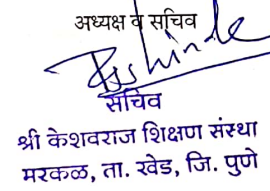 अध्यक्ष व सचिव
सचिव
श्री केशवराज शिक्षण संस्था
मरकळ, ता. खेड, जि. पुणे